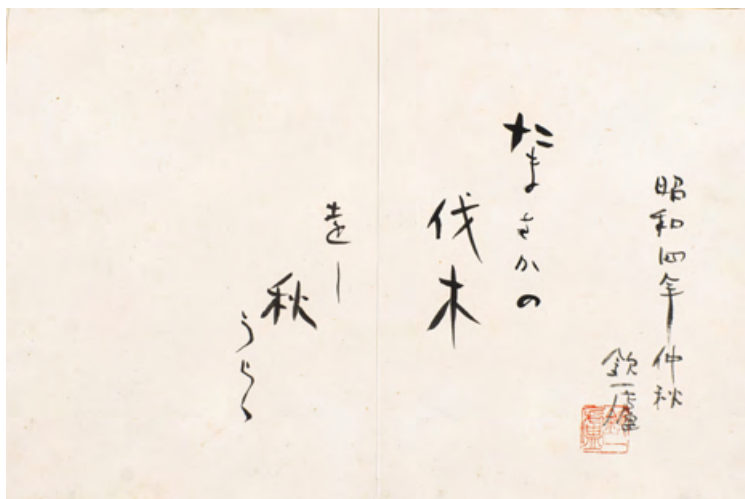 昭和四年仲秋
欽一廬
たまさかの
伐木
遠し
秋
うらゝ